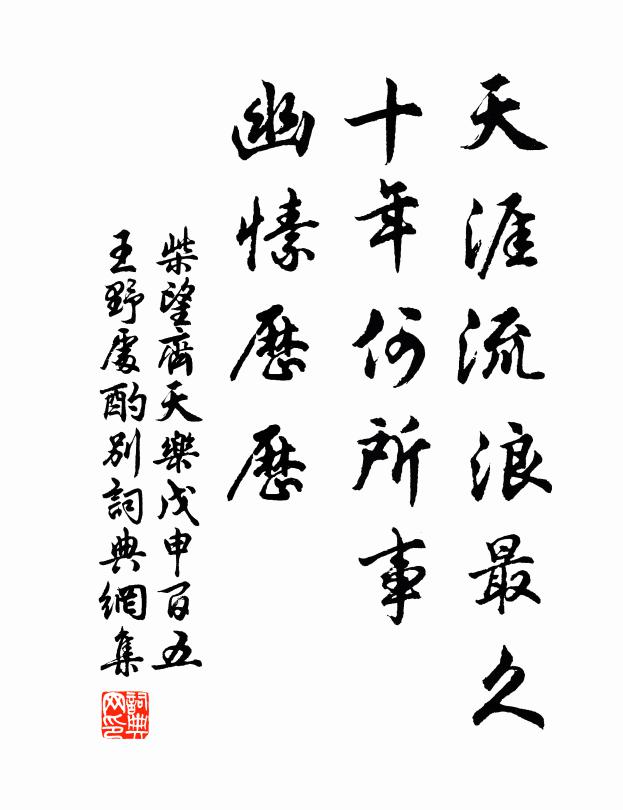 天涯流浪最久
十年何所事
幽愫歷歷
柴望齊天樂戊申百五
王野處酌別詞典網集
詞典網印